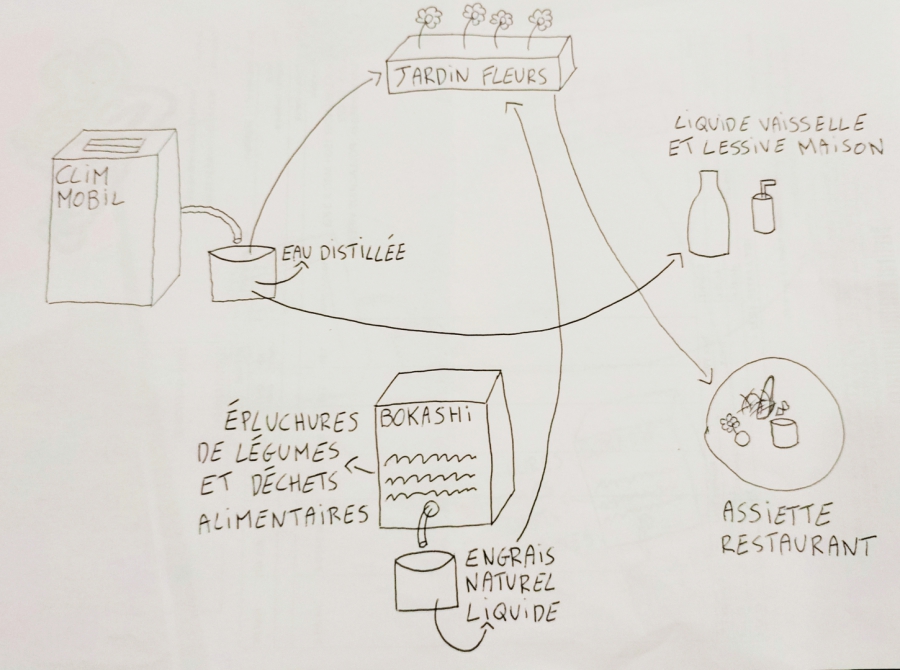 JARDIN FLEURS
LIQUIDE VAISSELLE
ET LESSIVE MAISON
CLIM
MOBIL
EAU DISTILLÉE
BOKASHI
ÉPLUCHURES
DE LÉGUMES
ET DÉCHETS
ALIMENTAIRES
ASSIETTE
RESTAURANT
ENGRAIS
NATUREL
LIQUIDE